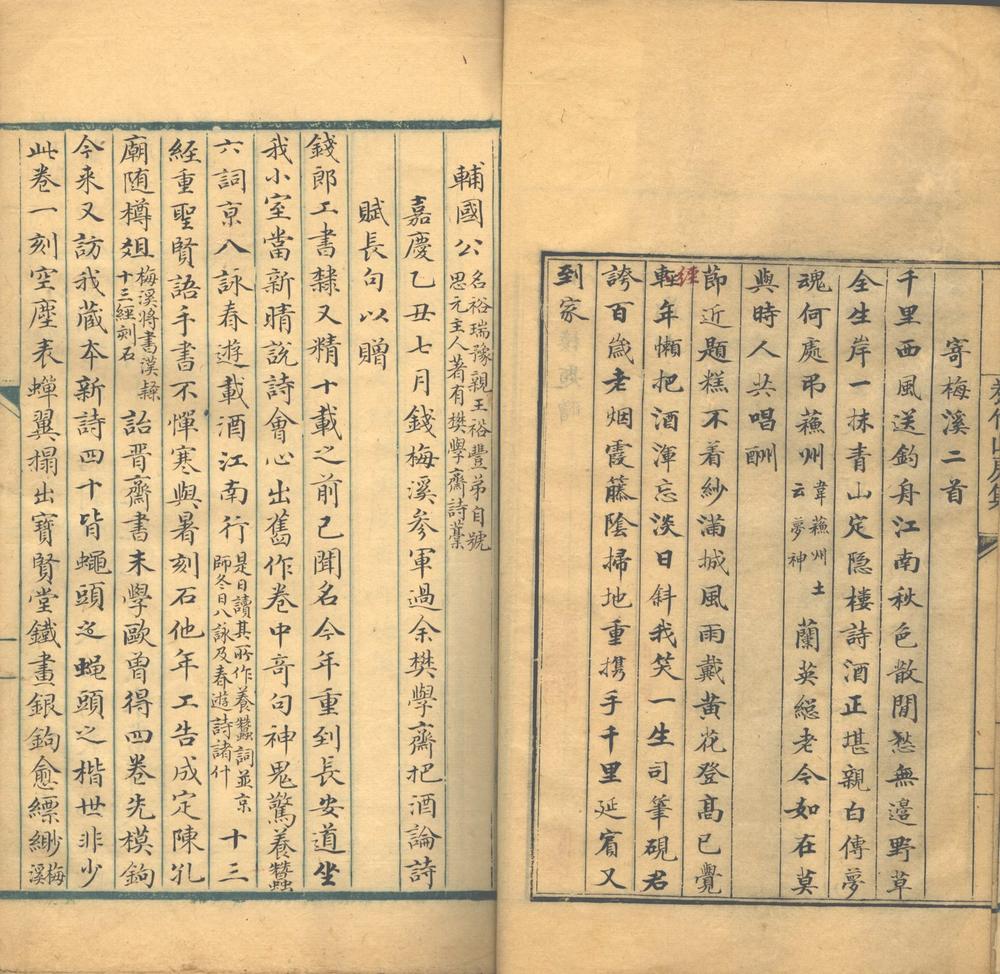 寄梅溪二首
千里西風送釣舟江南秋色散閒愁無邊野草
全生岸一抹青山定隐樓詩酒正堪親白傳夢
魂何處弔蘓州韋蘓州土云夢神蘭英縂老今如在莫
與時人共唱酬
節近題糕不着紗滿城風雨戴黄花登高已覺
輕經年懶把酒渾忘淡日斜我笑一生司筆硯君
誇百歲老烟霞籐陰掃地重携手千里延賓又
到家
輔國公名裕瑞豫親王裕豐弟自號思元主人著有樊學齋詩藁
嘉慶乙丑七月錢梅溪參軍過余樊學齋把酒論詩
賦長句以贈
錢郎工書隸又精十載之前已聞名今年重到長安道坐
我小室當新晴說詩會心出舊作卷中奇句神鬼驚養蠶
六詞京八詠春遊載酒江南行是日讀其所作養蠶詞並京師冬日八詠及春遊詩諸什十三
經重聖賢語手書不憚寒與暑刻石他年工告成定陳孔
廟随樽俎梅溪將書漢隸十三經刻石詒晋齋書未學歐曾得四卷先模鉤
今来又訪我藏本新詩四十皆蠅頭蠅頭之楷世非少
此卷一刻空塵表蟬翼搨出寶賢堂鐵畫銀鉤愈縹緲梅溪